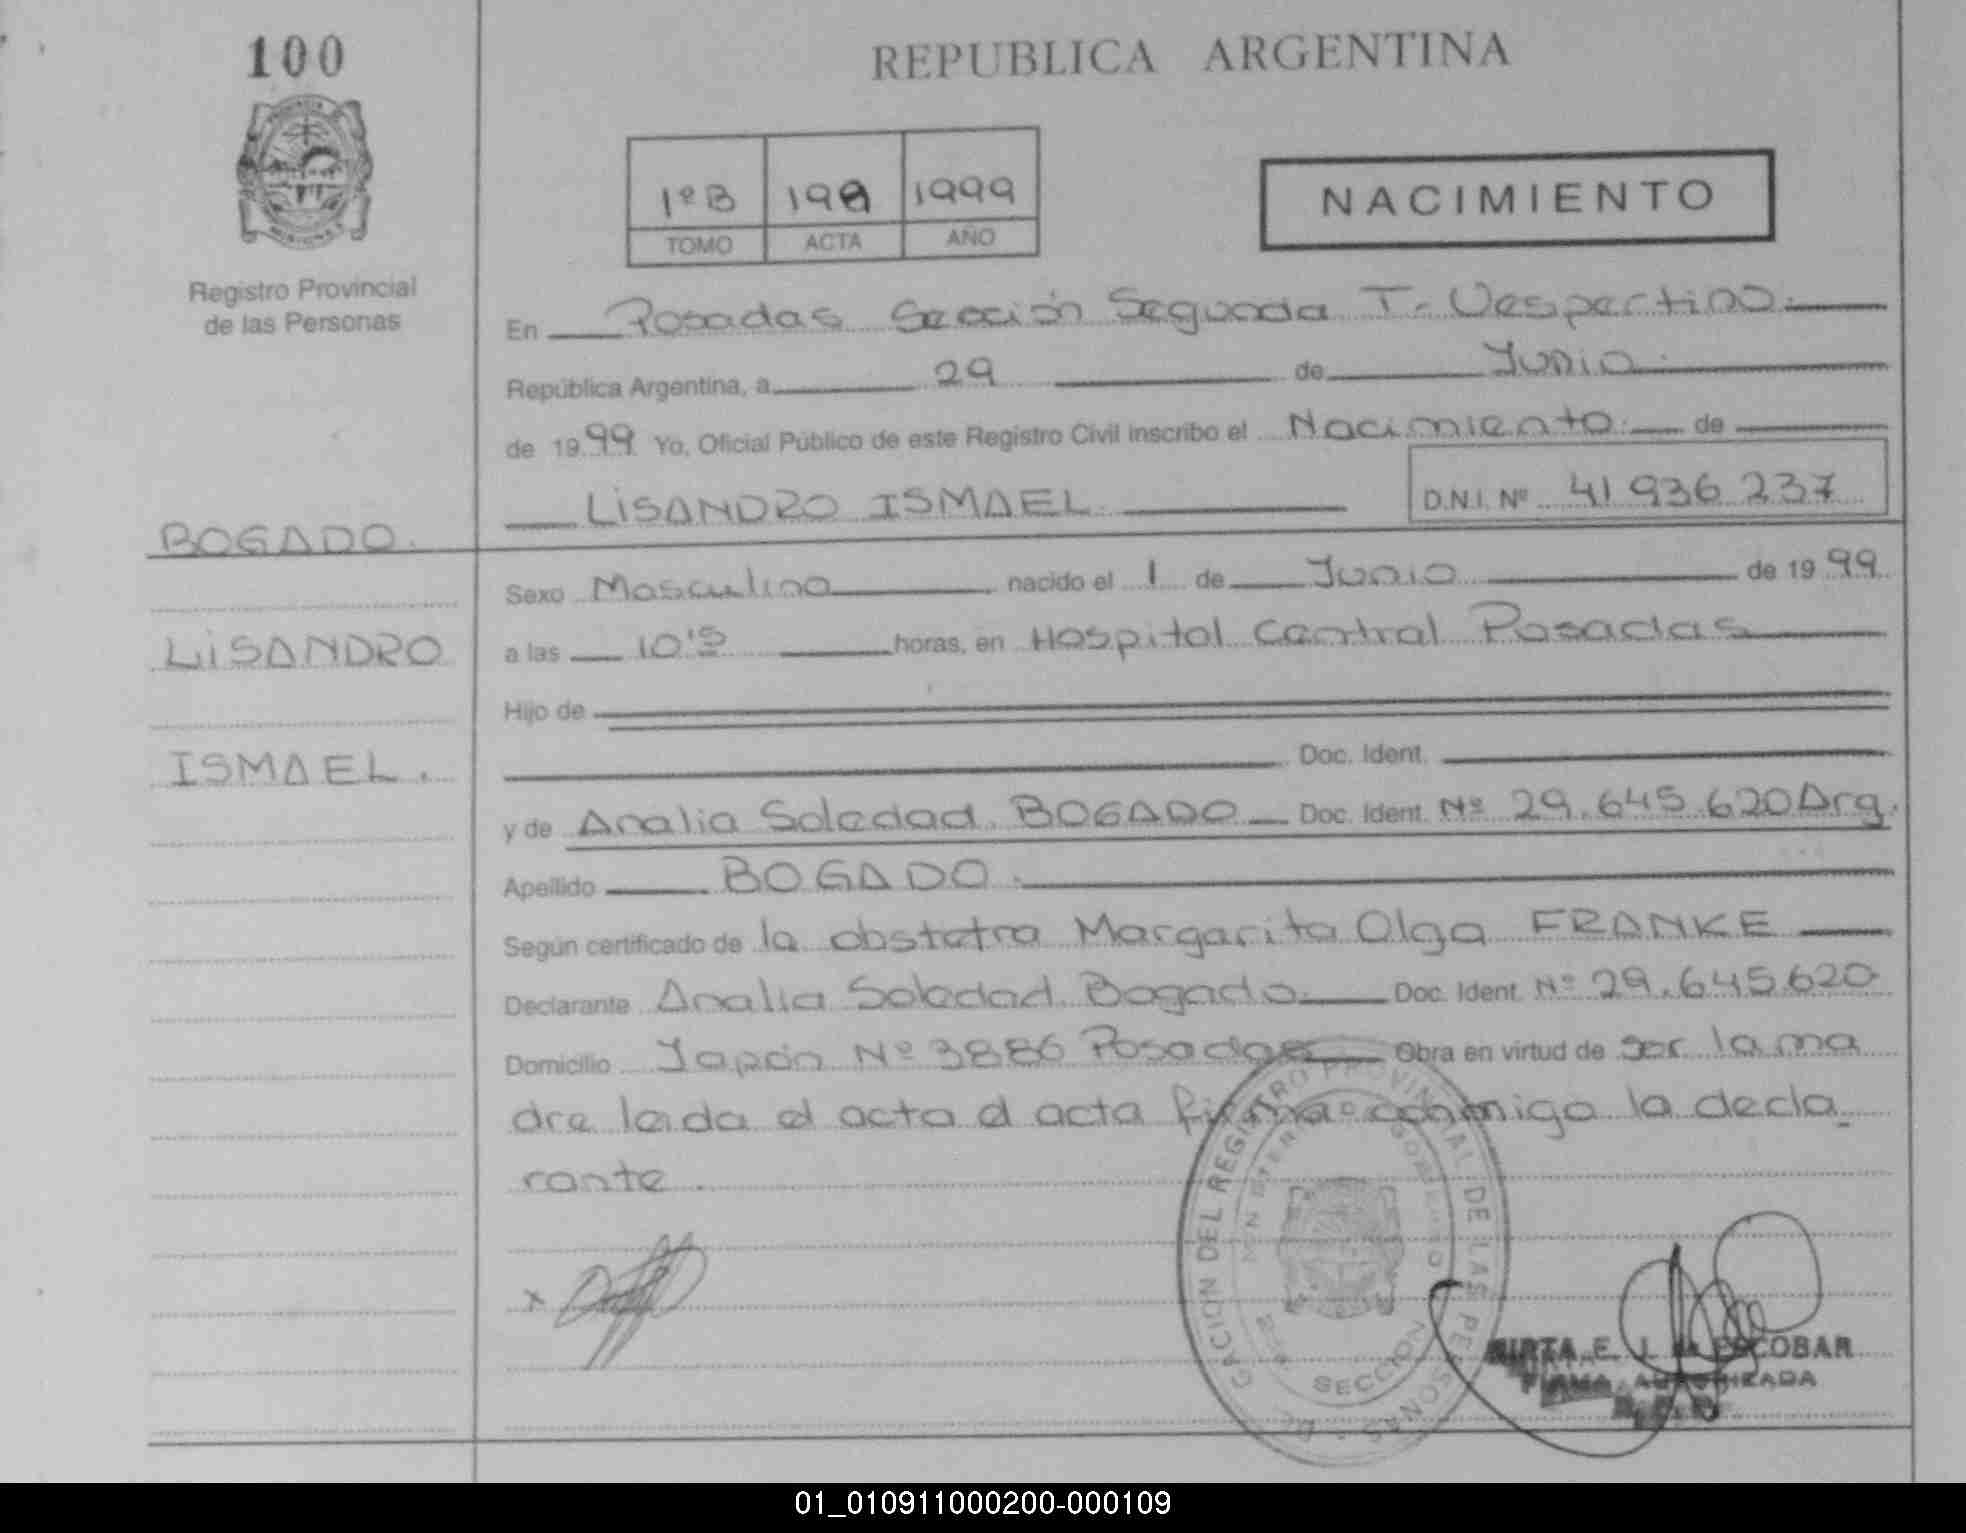 100
REPUBLICA ARGENTINA
1º B 199 1999
TOMO ACTA AÑO
NACIMIENTO
Registro Provincial
de las Personas
En Posadas Sección Segunda T. Vespertino.
República Argentina, a 29 de Junio.
de 1999 Yo, Oficial Público de este Registro Civil inscribo el Nacimiento. de
LiSANDRO ISMAEL.
D.N.I. Nº 41 936 237
BOGADO.
LiSANDRO
ISMAEL.
Sexo Masculino nacido el 1 de Junio de 1999
a las horas, en Hospital Central Posadas
Hijo de
Doc. Ident.
y de Analia Soledad BOGADO Doc. Ident. Nº 29.645.620 Arg.
Apellido BOGADO.
Según certificado de la obstetra Margarita Olga FRANKE
Declarante Analia Soledad Bogado. Doc. Ident. Nº 29.645.620
Domicilio Japón Nº 3886 Posadas Obra en virtud de ser la ma
dre leida el acta el acta firma conmigo la decla_
rante.
x
DELEGACION DEL REGISTRO PROVINCIAL DE LAS PERSONAS
MINISTERIO GOBIERNO
SECCION
MIRTA E. J. de ESCOBAR
FIRMA AUTORIZADA
01_010911000200-000109